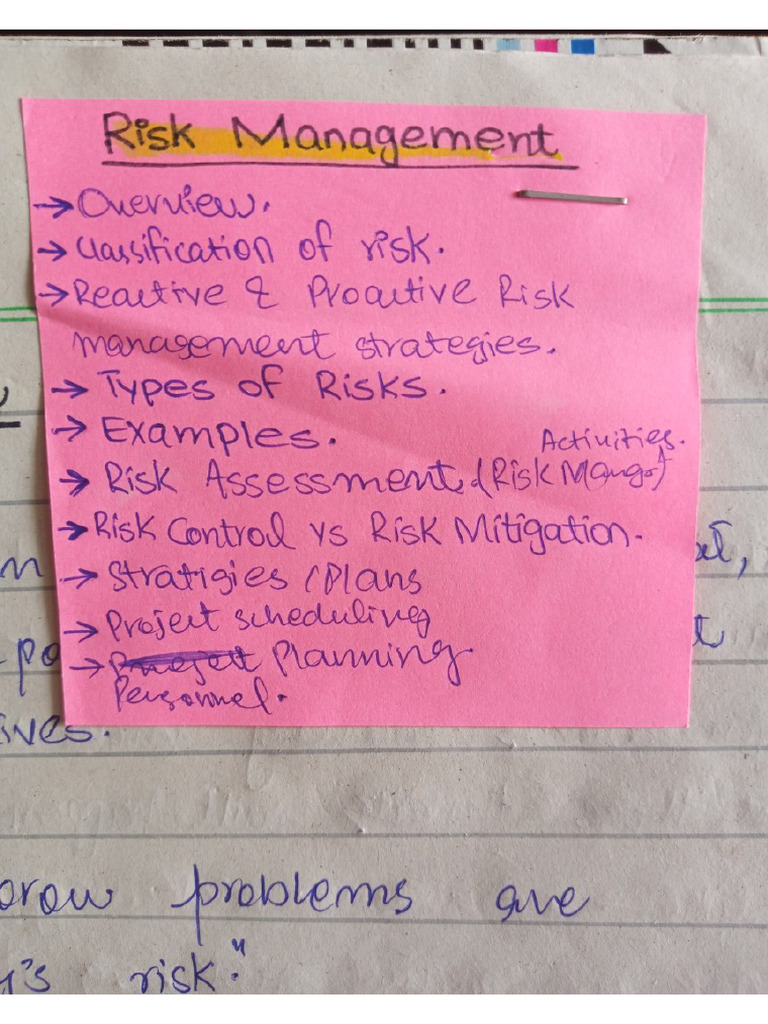 Risk Management
→ Overview.
→ Classification of risk.
→ Reactive & Proactive Risk
management strategies.
→ Types of Risks.
→ Examples.
Activities.
→ Risk Assessment. (Risk Mang.)
→ Risk Control vs Risk Mitigation.
→ Stratigies / Plans
→ Project scheduling
→ Planning.
Personnel.
ives.
orow problems are
y's risk."